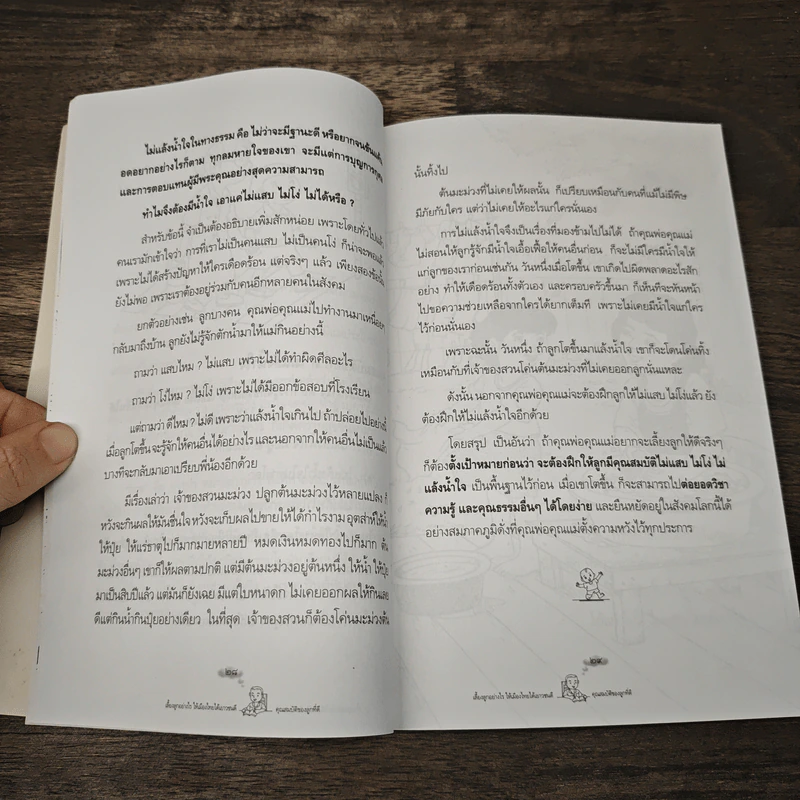 ไม่แล้งน้ำใจในทางธรรม คือ ไม่ว่าจะมีฐานะดี หรือยากจนข้นแค้น
อดอยากอย่างไรก็ตาม ทุกลมหายใจของเขา จะมีแต่การบุญการกุศล
และการตอบแทนผู้มีพระคุณอย่างสุดความสามารถ
ทำไมจึงต้องมีน้ำใจ เอาแค่ไม่แสบ ไม่โง่ ไม่ได้หรือ ?
สำหรับข้อนี้ จำเป็นต้องอธิบายเพิ่มสักหน่อย เพราะโดยทั่วไปแล้ว
คนเรามักเข้าใจว่า การที่เราไม่เป็นคนแสบ ไม่เป็นคนโง่ ก็น่าจะพอแล้ว
เพราะไม่ได้สร้างปัญหาให้ใครเดือดร้อน แต่จริงๆ แล้ว เพียงสองข้อนั้น
ยังไม่พอ เพราะเราต้องอยู่ร่วมกับคนอีกหลายคนในสังคม
ยกตัวอย่างเช่น ลูกบางคน คุณพ่อคุณแม่ไปทำงานมาเหนื่อยๆ
กลับมาถึงบ้าน ลูกยังไม่รู้จักตักน้ำมาให้แม่กินอย่างนี้
ถามว่า แสบไหม ? ไม่แสบ เพราะไม่ได้ทำผิดศีลอะไร
ถามว่า โง่ไหม ? ไม่โง่ เพราะไม่ได้มีออกข้อสอบที่โรงเรียน
แต่ถามว่า ดีไหม ? ไม่ดี เพราะว่าแล้งน้ำใจเกินไป ถ้าปล่อยไปอย่างนี้
เมื่อลูกโตขึ้น จะรู้จักให้คนอื่นได้อย่างไร และนอกจากให้คนอื่นไม่เป็นแล้ว
บางทีจะกลับมาเอาเปรียบพี่น้องอีกด้วย
มีเรื่องเล่าว่า เจ้าของสวนมะม่วง ปลูกต้นมะม่วงไว้หลายแปลง ก็
หวังจะกินผลให้มันชื่นใจ หวังจะเก็บผลไปขายให้ได้กำไรงาม อุตส่าห์ให้น้ำ
ให้ปุ๋ย ให้แร่ธาตุไปก็มากมายหลายปี หมดเงินหมดทองไปก็มาก ต้น
มะม่วงอื่นๆ เขาก็ให้ผลตามปกติ แต่มีต้นมะม่วงอยู่ต้นหนึ่ง ให้น้ำ ให้ปุ๋ย
มาเป็นสิบปีแล้ว แต่มันก็ยังเฉย มีแต่ใบหนาดก ไม่เคยออกผลให้กินเลย
ดีแต่กินน้ำกินปุ๋ยอย่างเดียว ในที่สุด เจ้าของสวนก็ต้องโค่นมะม่วงต้น
๒๘
เลี้ยงลูกอย่างไร ให้เมืองไทยได้เยาวชนดี คุณสมบัติของลูกที่ดี
นั้นทิ้งไป
ต้นมะม่วงที่ไม่เคยให้ผลนั้น ก็เปรียบเหมือนกับคนที่แม้ไม่มีพิษ
มีภัยกับใคร แต่ว่าไม่เคยให้อะไรแก่ใครนั่นเอง
การไม่แล้งน้ำใจจึงเป็นเรื่องที่มองข้ามไปไม่ได้ ถ้าคุณพ่อคุณแม่
ไม่สอนให้ลูกรู้จักมีน้ำใจเอื้อเฟื้อให้คนอื่นก่อน ก็จะไม่มีใครมีน้ำใจให้
แก่ลูกของเราก่อนเช่นกัน วันหนึ่งเมื่อโตขึ้น เขาเกิดไปผิดพลาดอะไรสัก
อย่าง ทำให้เดือดร้อนทั้งตัวเอง และครอบครัวขึ้นมา ก็เห็นที่จะหันหน้า
ไปขอความช่วยเหลือจากใครได้ยากเต็มที เพราะไม่เคยมีน้ำใจแก่ใคร
ไว้ก่อนนั่นเอง
เพราะฉะนั้น วันหนึ่ง ถ้าลูกโตขึ้นมาแล้งน้ำใจ เขาก็จะโดนโค่นทิ้ง
เหมือนกับที่เจ้าของสวนโค่นต้นมะม่วงที่ไม่เคยออกลูกนั่นแหละ
ดังนั้น นอกจากคุณพ่อคุณแม่จะต้องฝึกลูกให้ไม่แสบ ไม่โง่แล้ว ยัง
ต้องฝึกให้ไม่แล้งน้ำใจอีกด้วย
โดยสรุป เป็นอันว่า ถ้าคุณพ่อคุณแม่อยากจะเลี้ยงลูกให้ดีจริงๆ
ก็ต้องตั้งเป้าหมายก่อนว่า จะต้องฝึกให้ลูกมีคุณสมบัติไม่แสบ ไม่โง่ ไม่
แล้งน้ำใจ เป็นพื้นฐานไว้ก่อน เมื่อเขาโตขึ้น ก็จะสามารถไปต่อยอดวิชา
ความรู้ และคุณธรรมอื่นๆ ได้โดยง่าย และยืนหยัดอยู่ในสังคมโลกนี้ได้
อย่างสมภาคภูมิดังที่คุณพ่อคุณแม่ตั้งความหวังไว้ทุกประการ
๒๙
เลี้ยงลูกอย่างไร ให้เมืองไทยได้เยาวชนดี คุณสมบัติของลูกที่ดี